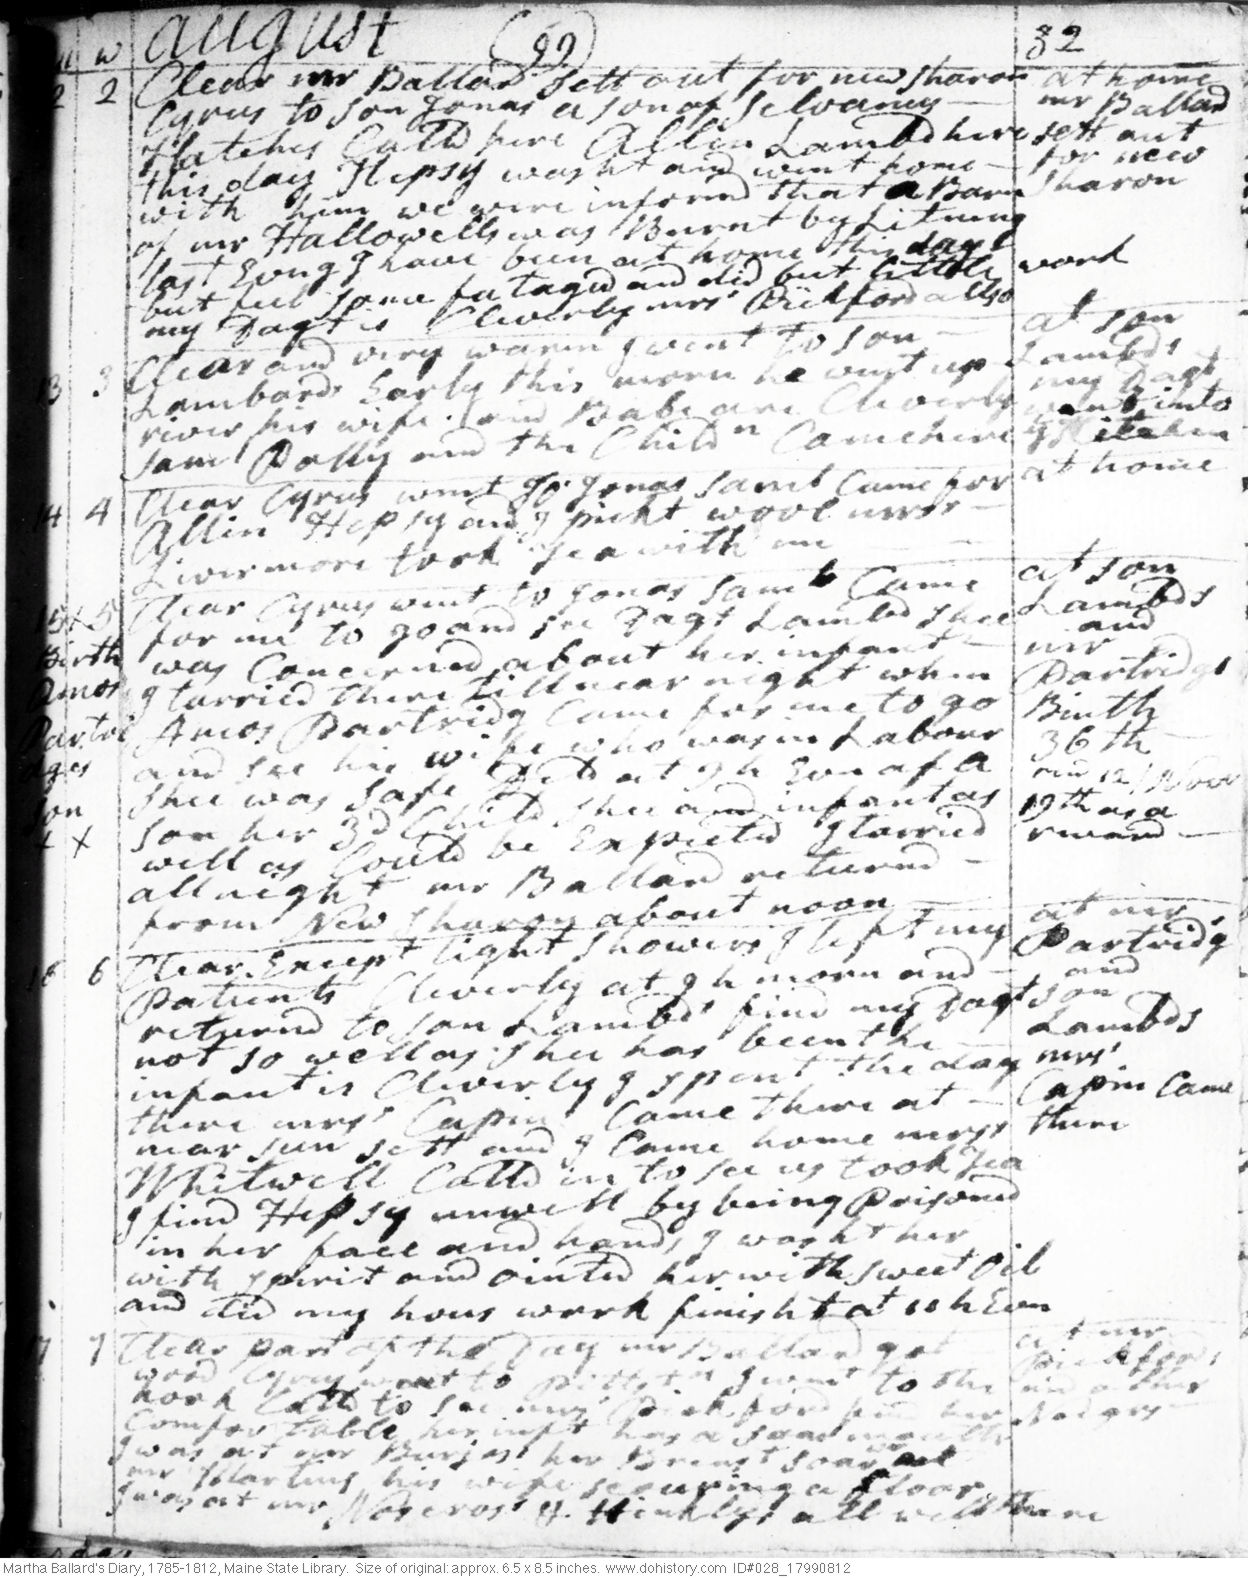 m w august (99) 82
2 2 Clear mr Ballard sett out for new Sharon at home
Cyrus to son Jonas a son of Selvanus mr Ballard
Hatches Calld here Allin Lambd here sett out
this day Hepsy washt and went home for new
with him we were informd that a Barn Sharon
of mr Hallowells was Burnt by Litning
last Evng I have been at home this day
but feel some fatagud and did but little work
my Dagt is Cleverly mrs Bickford allso
13 3 Clear and very warm I went to son at son
Lambards Early this morn he went up Lambds
river his wife and Babe are Cleverly my Dagt
Saml Dolly and the Childn Came here went into
y Kitchen
14 4 Clear Cyrus went to Jonas Saml Came for at home
Allin Hepsy and I pickt wool mrss
Livermore took Tea with me
15 5 Clear Cyrus went to Jonas Saml Came at son
for me to go and see Dagt Lambd shee Lambds
Birth was Concerned about her infant and
Amos I tarried there till near night when mr
Partri Amos Partridg Came for me to go Partridgs
dges and see his wife who was in Labour Birth
son shee was safe Deld at 9 h Evn of a 36th
X X son her 3d Child shee and infant as
well as Could be Expected I tarried 19th as a
all night mr Ballard returned reward
from New Sharon about noon
16 6 Clear Except light showers I left my at mr
Patients Cleverly at 9 h morn and Partridg
returnd to son Lambds find my Dagt and son
not so well as shee has been the Lambds
infant is Cleverly I spent the day mrs
there mrs Capin Came there at Capin Came
near sun sett and I Came home mrss there
Whitwell Calld in to see us took Tea
I find Hepsy unwell by being Poisoned
in her face and hands I washt her
with spirit and ointed her with sweet Oil
and did my hous work finisht at 11 h Evn
17 7 Clear part of the Day mr Ballard got at mr
wood Cyrus went to Pittstn I went to the Bickfords
hook Calld to see mrs Bickford find her and other
Comfortable her inft has a soar mouth
I was at mr Burjes her Breast soar
mr Martins his wife scouring a floar
I was at mr Hinklys all well there
Martha Ballard's Diary, 1785-1812, Maine State Library. Size of original: approx. 6.5 x 8.5 inches. www.dohistory.com ID#028_17990812